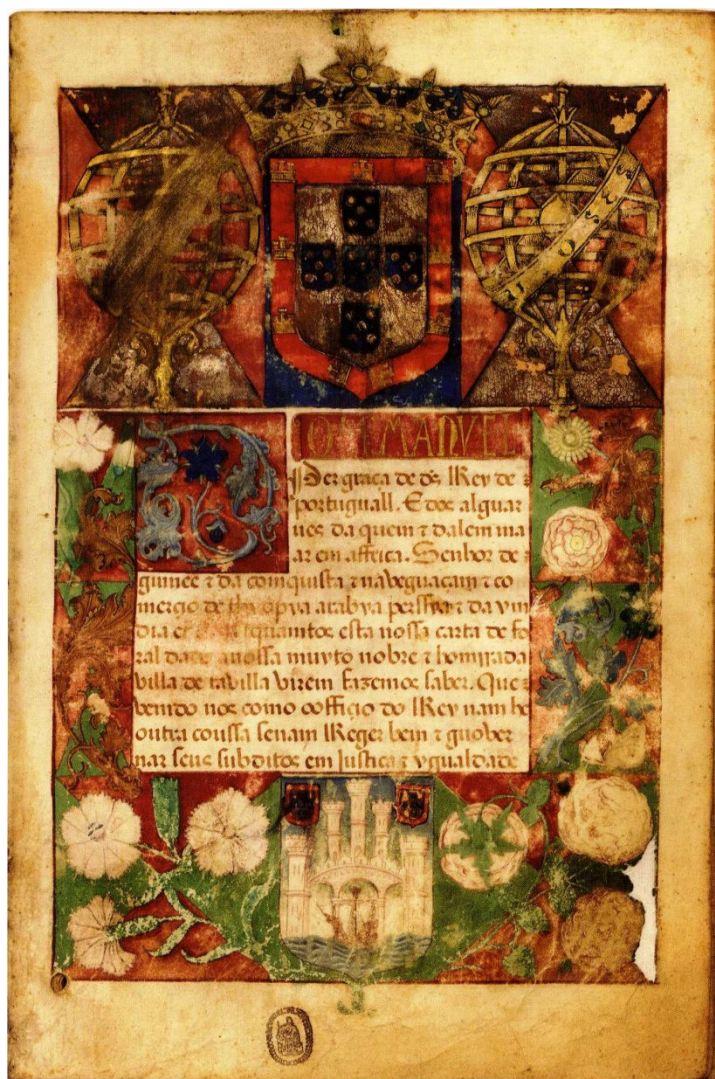 DOM MANVEL
Per graça de ds̃ Rey de
portuguall. E dos alguar
ues da quem ⁊ dalem ma
ar em affrica. Senhor de
guinee ⁊ da comquista ⁊ nabeguaçam ⁊ co
mercio de thyopya arabya perssya ⁊ da yn
dia ⁊ quamtos esta nossa carta de fo
ral dada a nossa muyto nobre ⁊ homrrada
villa de tavilla virem fazemos saber. Que
bemdo nos como officio do Rey nam he
outra coussa senam Reger bem ⁊ guober
nar seus subditos em Justiça ⁊ ygualdade